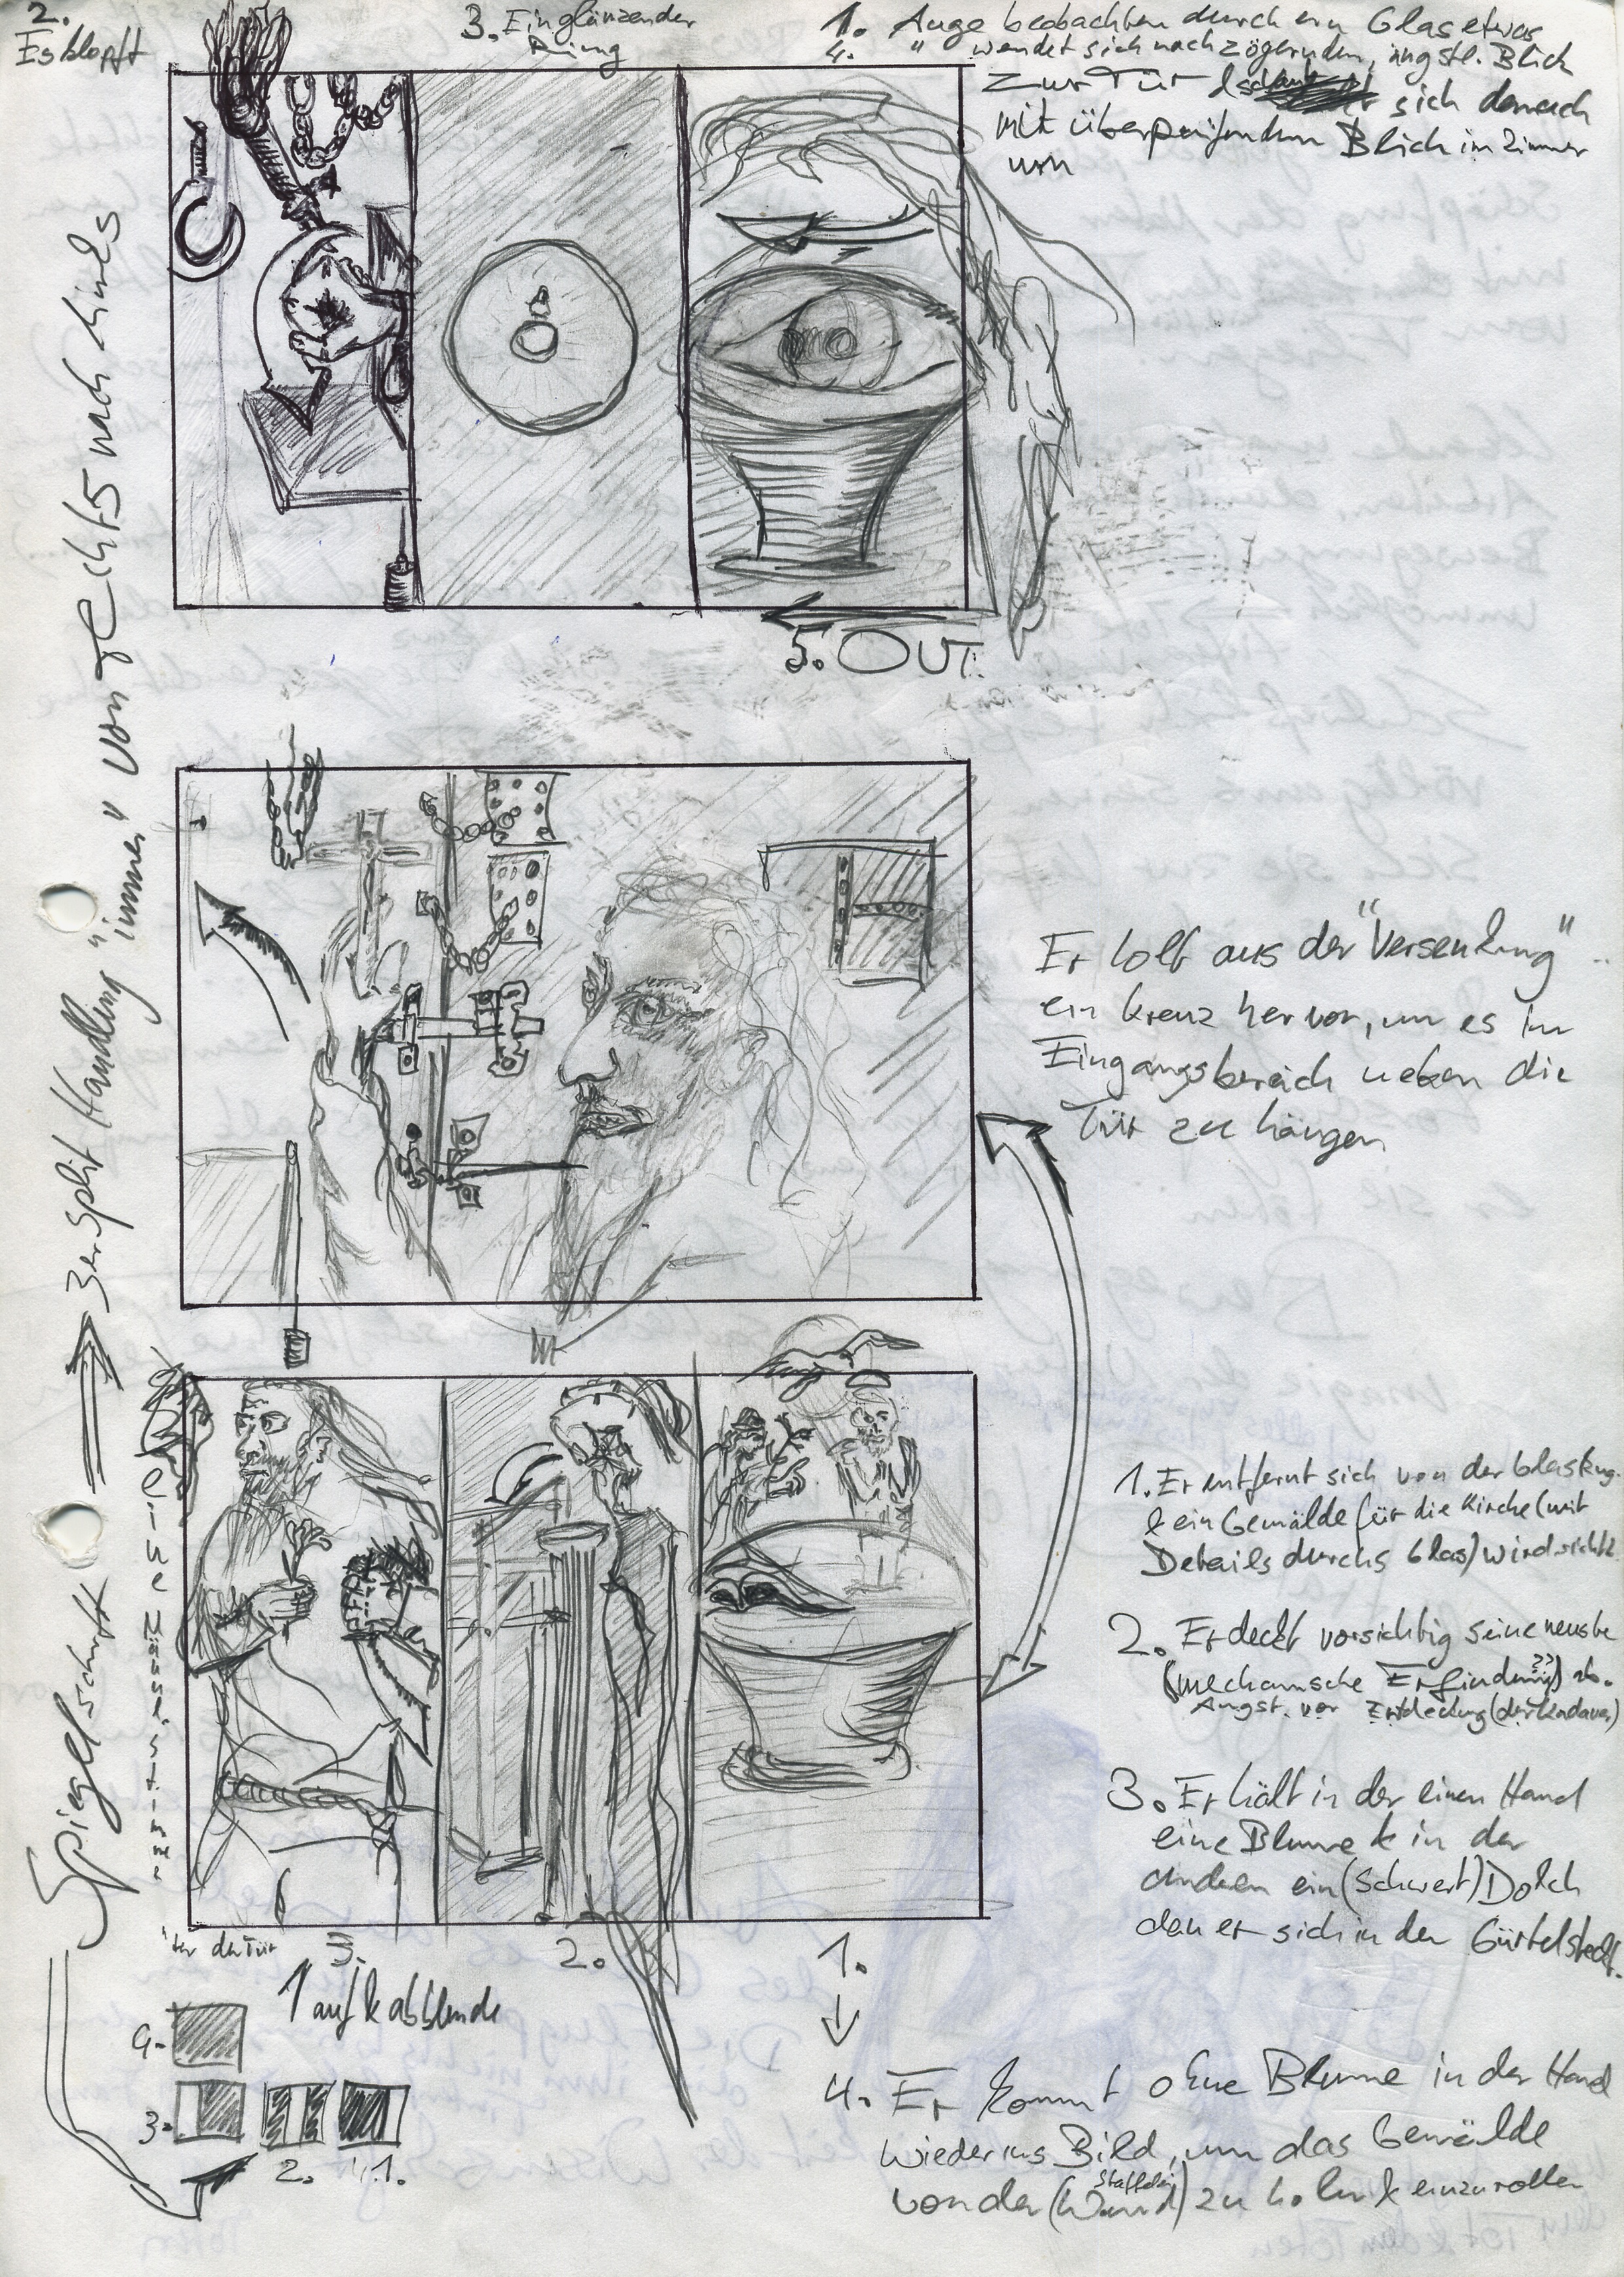 2.
Es klopft
3. Ein glänzender
Ring
1. Auge beobachten durch ein Glas etwas
4. " wendet sich nach zögernden, ängstl. Blick
zur Tür & sich danach
mit überprüfendem Blick im Zimmer
um
5. OUT.
Er holt aus der "Versenkung"
ein Kreuz hervor, um es im
Eingangsbereich neben die
Tür zu hängen
1. Er entfernt sich von der Glaskug.
& ein Gemälde für die Kirche (mit
Details durchs Glas) wird sichtb.
2. Er deckt vorsichtig seine neuste
(mechanische Erfindung??) ab.
Angst vor Entdeckung (der Kadaver)
3. Er hält in der einen Hand
eine Blume & in der
anderen ein (Schwert) Dolch
den er sich in den Gürtel steckt.
3. 2. 1.
4. Er kommt ohne Blume in der Hand
wieder ins Bild, um das Gemälde
von der (Wand) Staffelei zu holen & einzurollen
der Tür
1 auf & abblende
4.
3.
2. 1.
Spiegelschrift → 3er Split Handling "immer" von rechts nach links